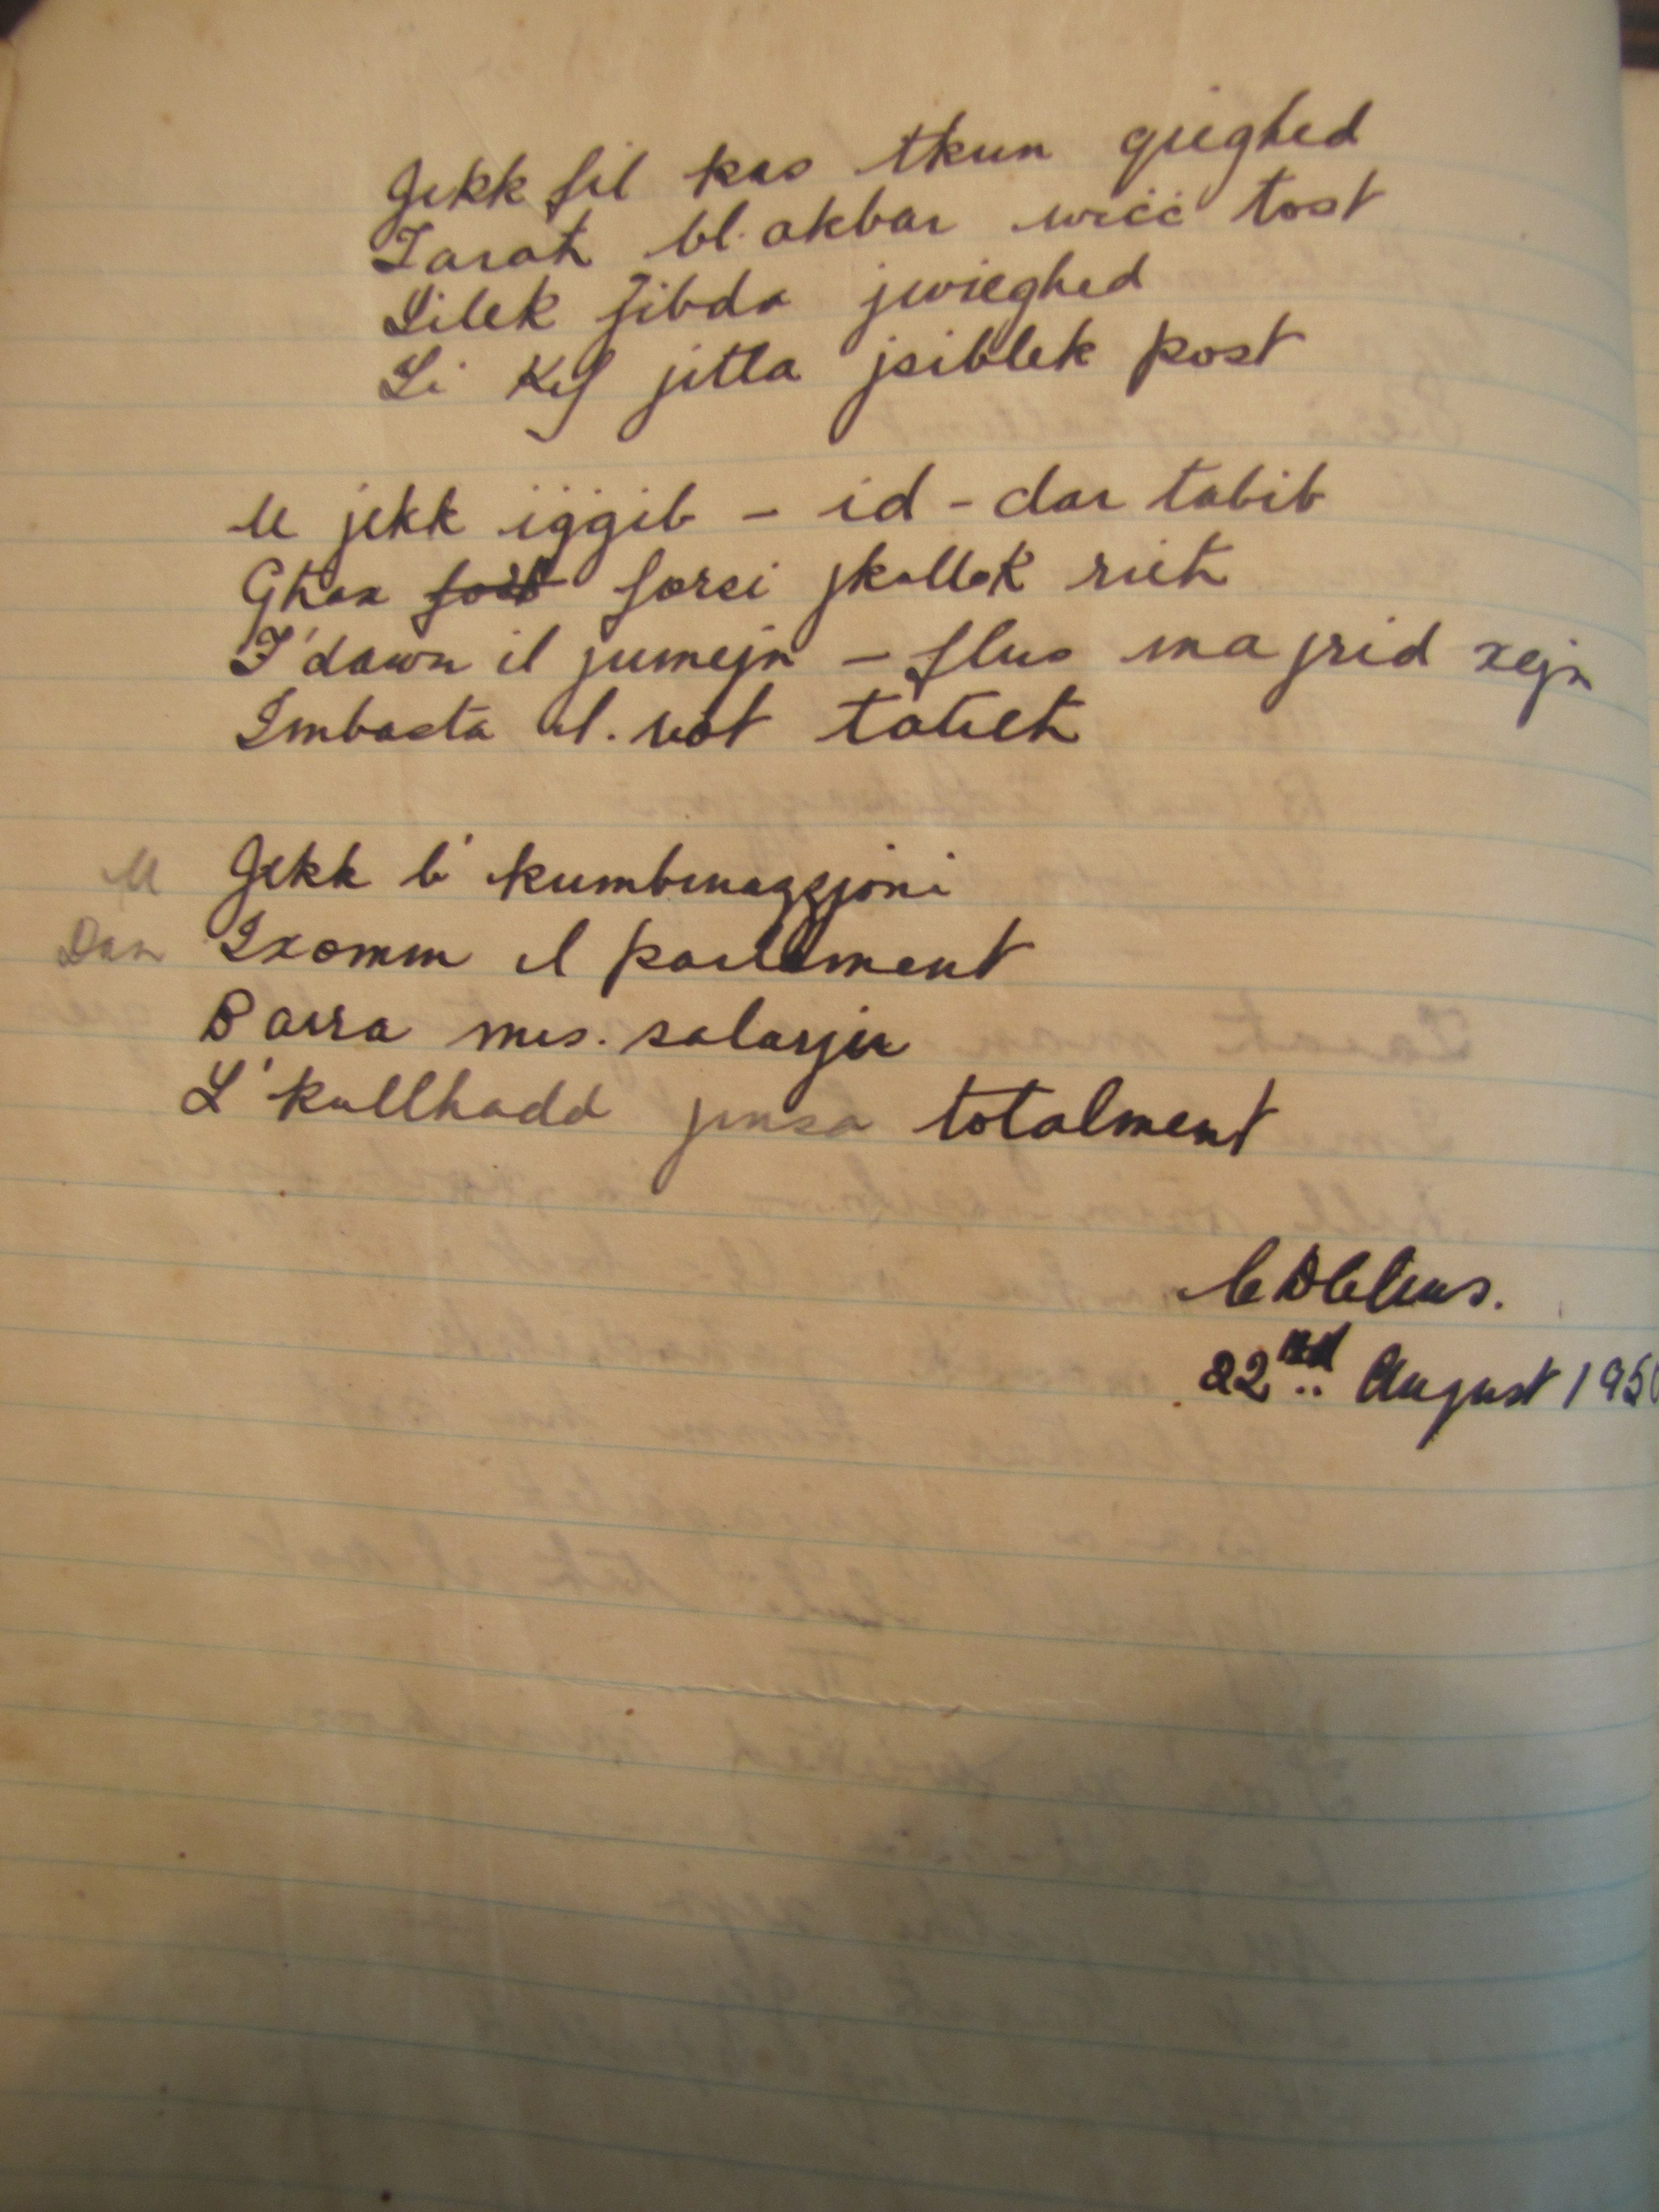 Jekk fil kas tkun gieghed
Tarah bl. akbar wiċċ tost
Lilek jibda jwieghed
Li Kif jitla jsiblek post
U jekk iġġib - id - dar tabib
Ghax forsi jkollok rieh
F'dawn il jumejn - flus ma jrid xejn
Imbasta il. vot tatieh
U Jekk b' kumbinazzjoni
Dan Ixomm il parlament
Barra mis. salarju
L' kullhadd jinsa totalment
22nd August 195